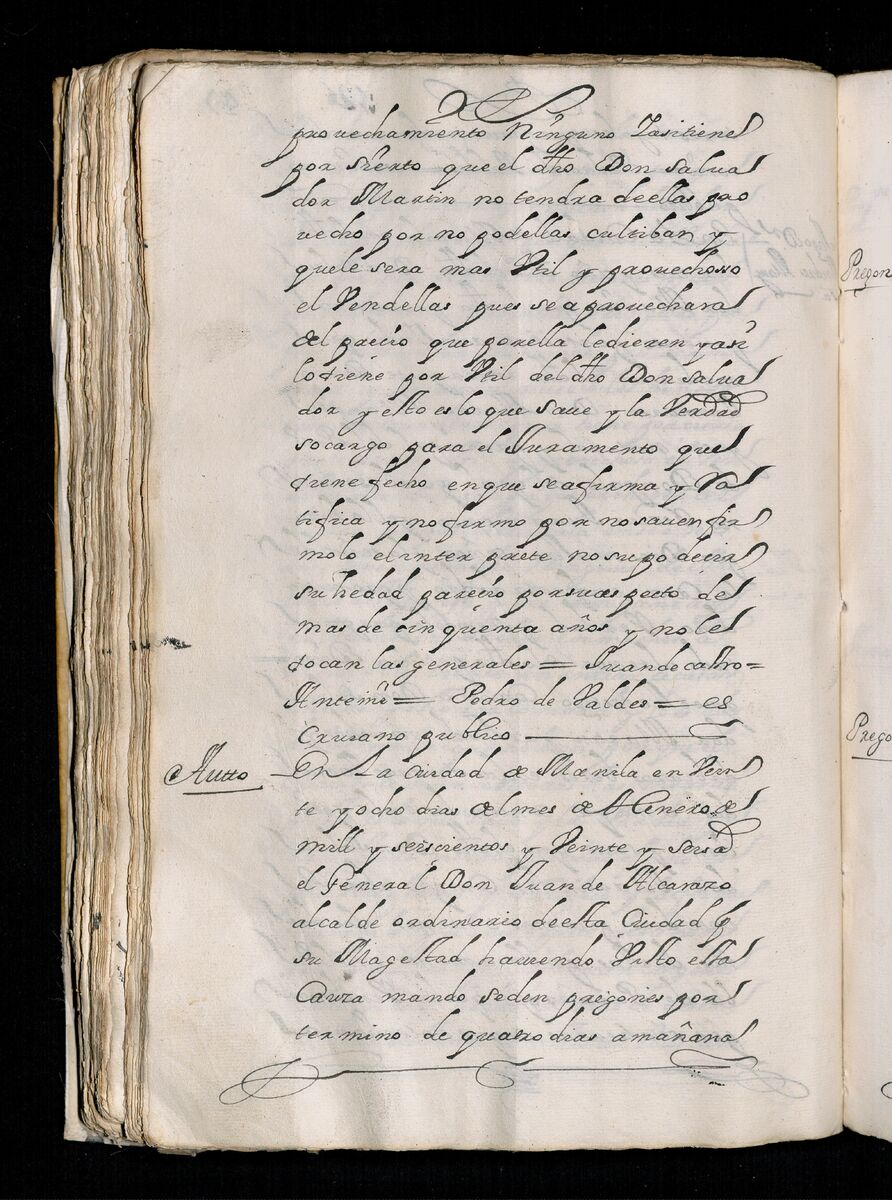 provechamiento Ninguno Yasitiene
por sierto que el dho Don salua
dor Martin no tendra deellas pro
vecho por no podellas cultibar y
quele sera mas Vtil y provechosso
el Vendellas pues se aprovechara
del precio que por ella ledieren yasi
lotiene por Vtil del dho Don salua
dor y esto es lo que saue y la Verdad
socargo para el Juramento que
tiene fecho en que se afirma y Ra
tifica y no firmo por no sauer fir
molo el inter prete no supo decir
su hedad parecio por su aspecto de
mas de cinquenta años y no le
tocan las generales = Juan de castro =
Antemi = Pedro de Valdes = es
Criuano publico
Autto En La Ciudad de Manila en Vein
te y ocho dias del mes de Henero de
mill y seiscientos y Veinte y seis a
el General Don Juan de Alcarazo
alcalde ordinario deesta Ciudad por
su Magestad haviendo Visto esta
Cauza mando seden pregones por
termino de quatro dias a mañana
Pregon
Prego